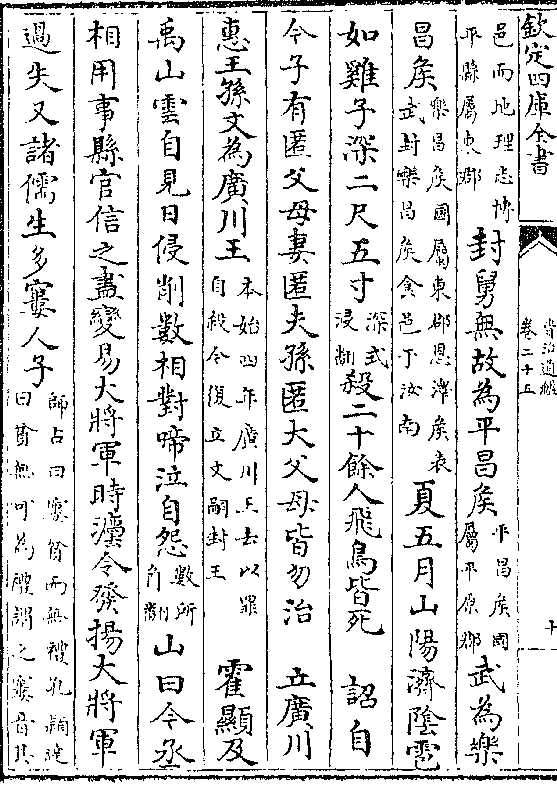 欽定四庫全書
資治通鑑
卷二十五
十
邑而地理志博平縣屬東郡封舅無故為平昌矦平昌矦國屬平原郡武為樂
昌矦樂昌矦國屬東郡恩澤矦表武封樂昌矦食邑于汝南夏五月山陽濟陰雹
如雞子深二尺五寸深式浸翻殺二十餘人飛鳥皆死　詔自
今子有匿父母妻匿夫孫匿大父母皆勿治　立廣川
惠王孫文為廣川王本始四年廣川王去以罪自殺今復立文嗣封王　霍顯及
禹山雲自見日侵削數相對啼泣自怨數所角翻山曰今丞
相用事縣官信之盡變易大將軍時灋令發揚大將軍
過失又諸儒生多窶人子師古曰窶貧而無禮孔穎達曰貧無可為禮謂之窶音其